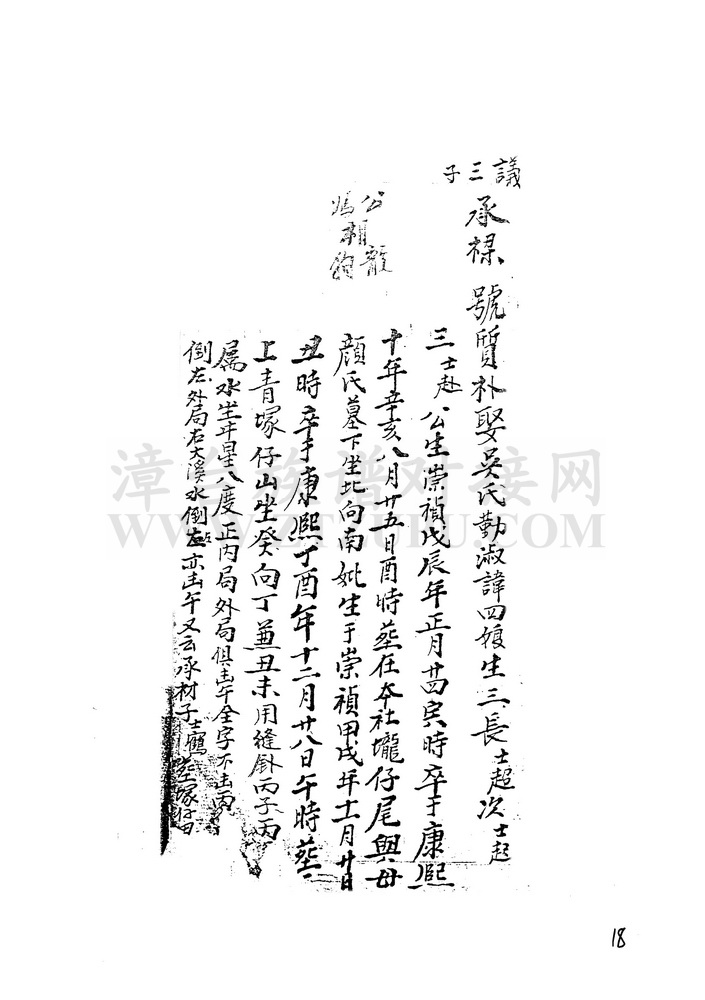 議三子
承樑 號質朴娶吳氏勤淑諱四娘生三長士超次士起
三士赴公生崇禎戊辰年正月廿四寅時卒于康熙
十年辛亥八月廿五日酉時葬在本社壠仔尾與母
顏氏墓下坐北向南妣生于崇禎甲戌年十一月廿日
丑時卒于康熙丁酉年十二月廿八日午時葬
上青塚仔山坐癸向丁兼丑未用縫針丙子丙
屬水坐牛星八度正內局外局俱出午全字不出丙
倒左外局右大溪水倒左亦出午又云承材子士鶴葬塚仔
公龍
媽朝
漳台族譜对接网
WWW.ZTZUPU.COM
18